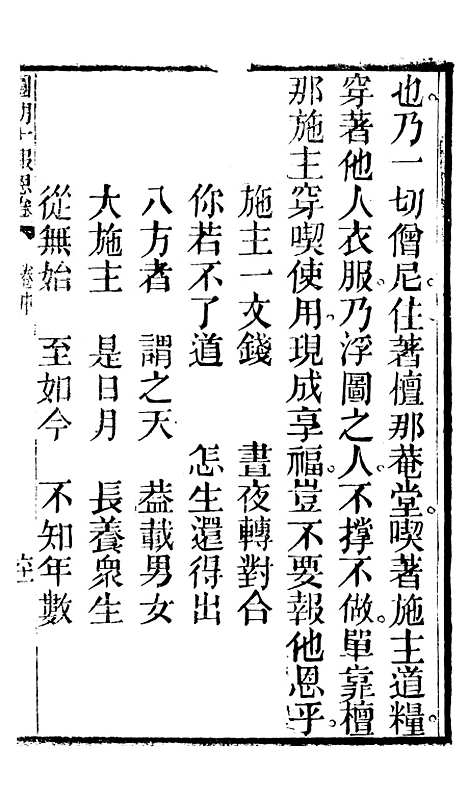 也。乃一切僧尼。住著檀那菴堂。喫著施主道糧。
穿著他人衣服。乃浮圖之人。不撑不做。單靠檀
那施主穿喫使用。現成享福。豈不要報他恩乎
施主一文錢　晝夜轉對合
你若不了道　怎生還得出
八方者　謂之天　葢載男女
大施主　是日月　長養衆生
從無始　至如今　不知年數
報恩卷